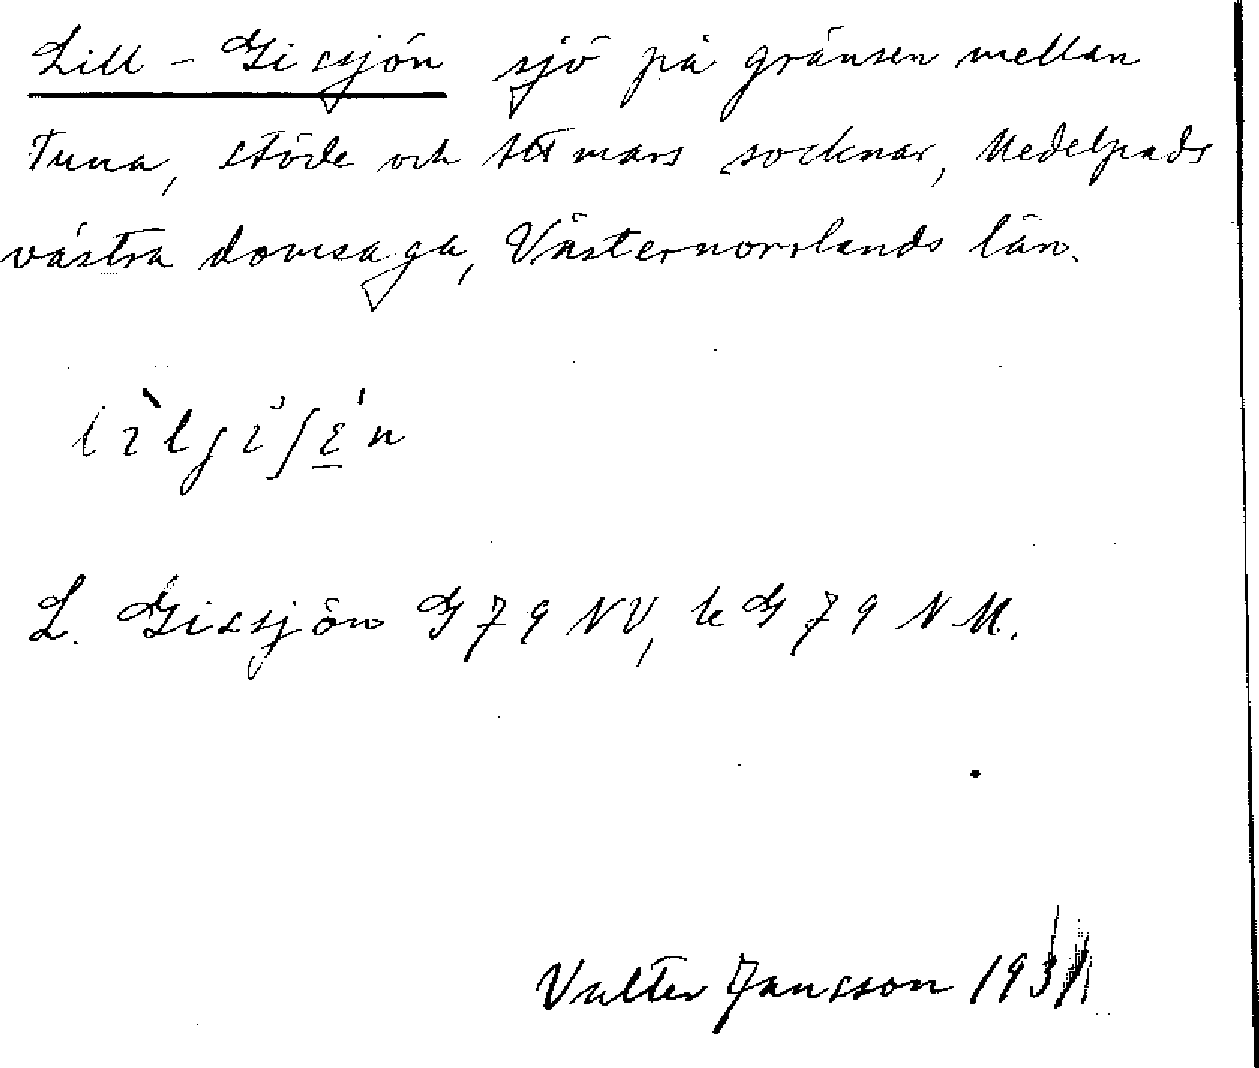 Lill-Gissjön sjö på gränsen mellan
Tuna, Stöde och Attmars socknar, Medelpads
västra domsaga, Västernorrlands län.
L. Gissjön G 79 NV, k G 79 NM.
Valter Jansson 1931